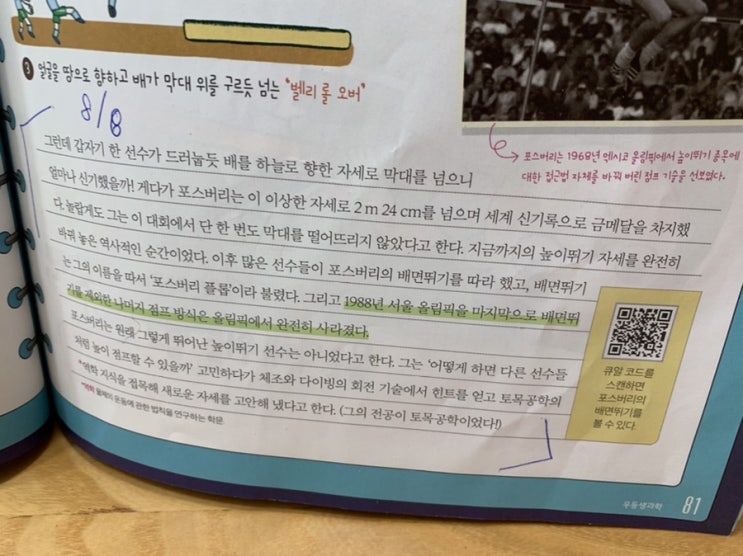 3 얼굴을 땅으로 향하고 배가 막대 위를 구르듯 넘는 "벨리 롤 오버"
8/8
포스버리는 1968년 멕시코 올림픽에서 높이뛰기 종목에
대한 접근법 자체를 바꿔 버린 점프 기술을 선보였다.
그런데 갑자기 한 선수가 드러눕듯 배를 하늘로 향한 자세로 막대를 넘으니
얼마나 신기했을까! 게다가 포스버리는 이 이상한 자세로 2m 24cm를 넘으며 세계 신기록으로 금메달을 차지했
다. 놀랍게도 그는 이 대회에서 단 한 번도 막대를 떨어뜨리지 않았다고 한다. 지금까지의 높이뛰기 자세를 완전히
바꿔 놓은 역사적인 순간이었다. 이후 많은 선수들이 포스버리의 배면뛰기를 따라 했고, 배면뛰기
는 그의 이름을 따서 '포스버리 플롭'이라 불렸다. 그리고 1988년 서울 올림픽을 마지막으로 배면뛰
기를 제외한 나머지 점프 방식은 올림픽에서 완전히 사라졌다.
포스버리는 원래 그렇게 뛰어난 높이뛰기 선수는 아니었다고 한다. 그는 '어떻게 하면 다른 선수들
처럼 높이 점프할 수 있을까' 고민하다가 체조와 다이빙의 회전 기술에서 힌트를 얻고 토목공학의
*역학 지식을 접목해 새로운 자세를 고안해 냈다고 한다. (그의 전공이 토목공학이었다!)
*역학 물체의 운동에 관한 법칙을 연구하는 학문.
큐알 코드를
스캔하면
포스버리의
배면뛰기를
볼 수 있다.
우등생과학 81